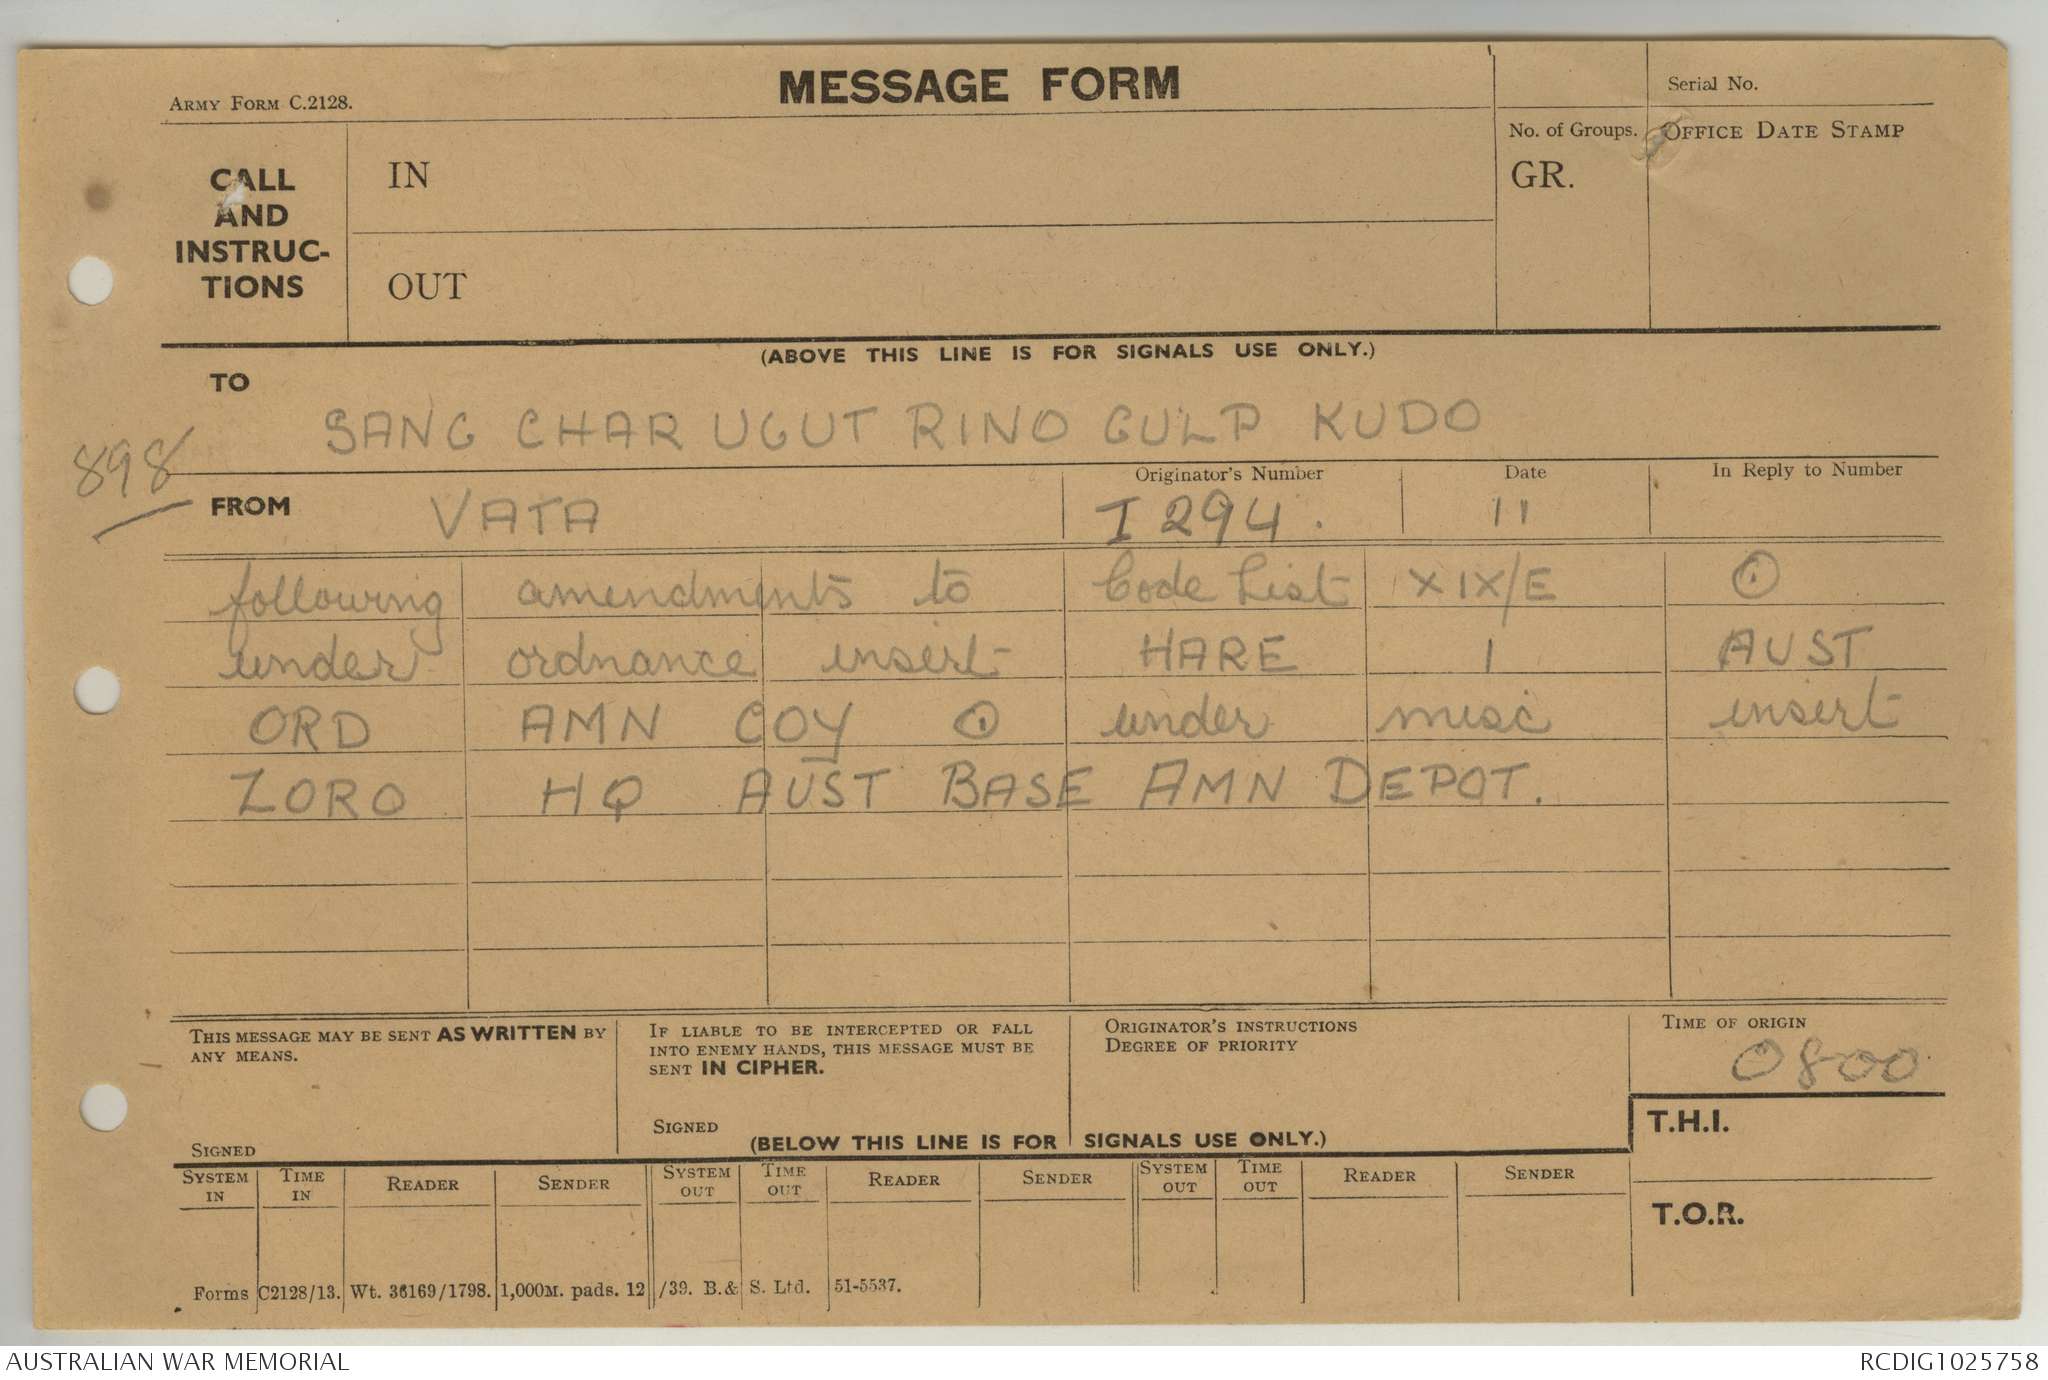 ARMY FORM C.2128.
MESSAGE FORM
Serial No.
CALL
AND
INSTRUC-
TIONS
IN
OUT
No. of Groups.
GR.
OFFICE DATE STAMP
(ABOVE THIS LINE IS FOR SIGNALS USE ONLY.)
TO
SANG CHAR UGUT RINO GULP KUDO
898
FROM
VATA
Originator's Number
I 294.
Date
11
In Reply to Number
following amendments to Code List XIX/E ⊙
under ordnance insert HARE 1 AUST
ORD AMN COY ⊙ under misc insert
ZORO HQ AUST BASE AMN DEPOT.
THIS MESSAGE MAY BE SENT AS WRITTEN BY
ANY MEANS.
SIGNED
IF LIABLE TO BE INTERCEPTED OR FALL
INTO ENEMY HANDS, THIS MESSAGE MUST BE
SENT IN CIPHER.
SIGNED
ORIGINATOR'S INSTRUCTIONS
DEGREE OF PRIORITY
TIME OF ORIGIN
0800
(BELOW THIS LINE IS FOR SIGNALS USE ONLY.)
T.H.I.
T.O.R.
SYSTEM IN TIME IN READER SENDER SYSTEM OUT TIME OUT READER SENDER SYSTEM OUT TIME OUT READER SENDER
Forms C2128/13. Wt. 36169/1798. 1,000M. pads. 12/39. B.& S. Ltd. 51-5537.
AUSTRALIAN WAR MEMORIAL
RCDIG1025758